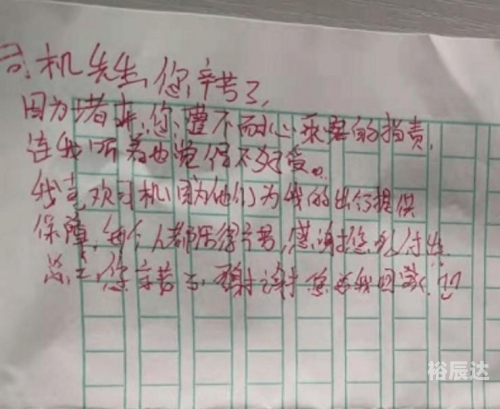 司机先生,您辛苦了,
因为堵车,您遭不耐心乘客的指责,
连我听着也觉得不好受。
我喜欢司机因为他们为我的出行提供
保障,每个人都活得辛苦,感谢您的付出
总之,您辛苦了,谢谢您送我回家!
裕辰达